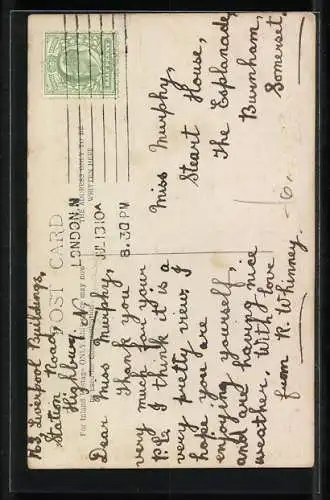 POST CARD
THE ADDRESS ONLY TO BE
WRITTEN HERE
HALFPENNY
LONDON. N
JUL 13 10 A
8.30 PM
43, Liverpool Buildings,
Station Road,
Highbury. N.
Dear Miss Murphy,
Thank you
very much for your
P.C. I think it is a
very pretty view. I
hope you are
enjoying yourself,
and are having nice
weather. With love
from R. Whinney.
Miss Murphy,
Steart House,
The Esplanade,
Burnham,
Somerset.